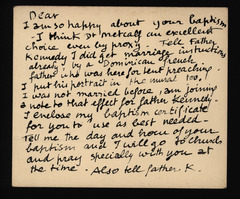 Dear
I am so happy about your baptism
- I think Dr Metcalf an excellent
choice even by proxy. Tell Father
Kennedy I did get marriage instruction
already, by a Dominican French
father who was here for Lent preaching
I put his portrait in the mural too!
I was not married before, am joining
a note to that effect for father Kennedy.
I enclose my baptism certificate
for you to use as best needed.
Tell me the day and hour of your
baptism and I will go to church
and pray specially with you at
the time. Also tell father K.